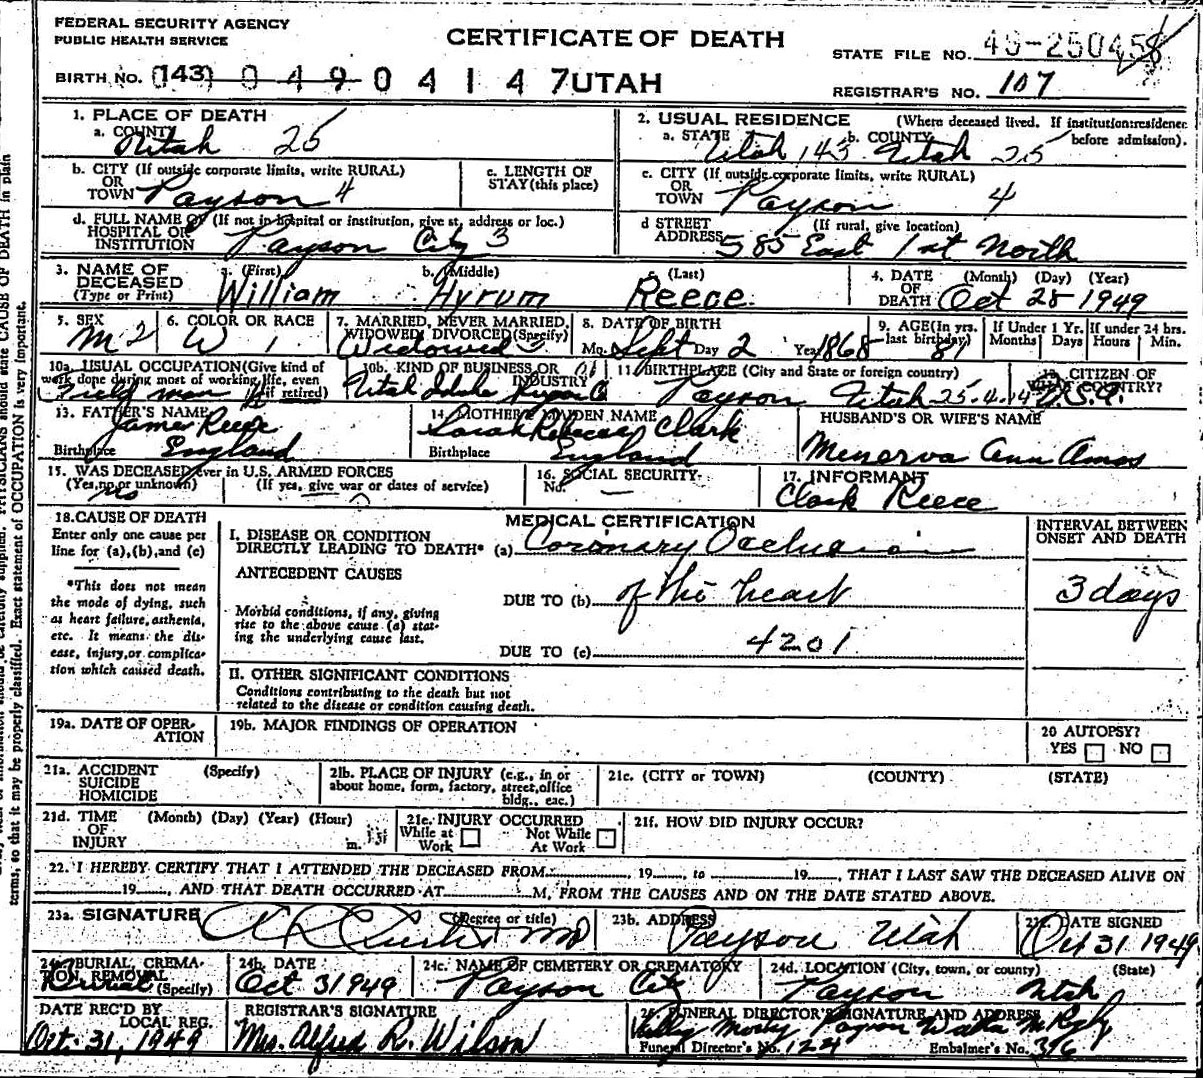 FEDERAL SECURITY AGENCY
PUBLIC HEALTH SERVICE
CERTIFICATE OF DEATH
STATE FILE NO. 49-250458
BIRTH NO. (143) 0 4 9 0 4 1 4 7 UTAH
REGISTRAR'S NO. 107
1. PLACE OF DEATH
a. COUNTY Utah 25
2. USUAL RESIDENCE (Where deceased lived. If institution: residence before admission).
a. STATE Utah 143 b. COUNTY Utah 25
b. CITY (If outside corporate limits, write RURAL) OR TOWN Payson 4
c. LENGTH OF STAY (this place)
c. CITY (If outside corporate limits, write RURAL) OR TOWN Payson 4
d. FULL NAME OF (If not in hospital or institution, give st. address or loc.) HOSPITAL OR INSTITUTION Payson City 3
d STREET ADDRESS (If rural, give location) 585 East 1st North
3. NAME OF DECEASED (Type or Print)
a. (First) William b. (Middle) Hyrum c. (Last) Reece
4. DATE OF DEATH (Month) (Day) (Year) Oct 28 1949
5. SEX M 2
6. COLOR OR RACE W 1
7. MARRIED, NEVER MARRIED, WIDOWED, DIVORCED (Specify) Widowed
8. DATE OF BIRTH Mo. Sept Day 2 Year 1868
9. AGE (In yrs. last birthday) 81
If Under 1 Yr. Months Days
If under 24 hrs. Hours Min.
10a. USUAL OCCUPATION (Give kind of work done during most of working life, even if retired) Field man
10b. KIND OF BUSINESS OR INDUSTRY Utah Idaho Sugar Co
11. BIRTHPLACE (City and State or foreign country) Payson Utah 25-4-14
12. CITIZEN OF WHAT COUNTRY? U.S.A.
13. FATHER'S NAME James Reece
Birthplace England
14. MOTHER'S MAIDEN NAME Sarah Rebecca Clark
Birthplace England
HUSBAND'S OR WIFE'S NAME
Minerva Ann Amos
15. WAS DECEASED ever in U.S. ARMED FORCES
(Yes, no or unknown) (If yes, give war or dates of service)
no
16. SOCIAL SECURITY No. —
17. INFORMANT
Clark Reece
18. CAUSE OF DEATH
Enter only one cause per line for (a), (b), and (c)
*This does not mean the mode of dying, such as heart failure, asthenia, etc. It means the disease, injury, or complication which caused death.
MEDICAL CERTIFICATION
INTERVAL BETWEEN ONSET AND DEATH
I. DISEASE OR CONDITION DIRECTLY LEADING TO DEATH* (a) Coronary Occlusion
ANTECEDENT CAUSES
DUE TO (b) of the heart
3 days
Morbid conditions, if any, giving rise to the above cause (a) stating the underlying cause last.
DUE TO (c) 4201
II. OTHER SIGNIFICANT CONDITIONS
Conditions contributing to the death but not related to the disease or condition causing death.
19a. DATE OF OPERATION
19b. MAJOR FINDINGS OF OPERATION
20 AUTOPSY?
YES NO
21a. ACCIDENT SUICIDE HOMICIDE (Specify)
21b. PLACE OF INJURY (e.g., in or about home, form, factory, street, office bldg., eac.)
21c. (CITY or TOWN) (COUNTY) (STATE)
21d. TIME OF INJURY (Month) (Day) (Year) (Hour) m.
21e. INJURY OCCURRED
While at Work Not While At Work
21f. HOW DID INJURY OCCUR?
22. I HEREBY CERTIFY THAT I ATTENDED THE DECEASED FROM , 19 , to 19 , THAT I LAST SAW THE DECEASED ALIVE ON
19 , AND THAT DEATH OCCURRED AT M, FROM THE CAUSES AND ON THE DATE STATED ABOVE.
23a. SIGNATURE (Degree or title) Curtis MD
23b. ADDRESS Payson Utah
DATE SIGNED Oct 31 1949
24a. BURIAL, CREMATION, REMOVAL (Specify) Burial
24b. DATE Oct 31 1949
24c. NAME OF CEMETERY OR CREMATORY Payson City
24d. LOCATION (City, town, or county) (State) Payson Utah
DATE REC'D BY LOCAL REG. Oct. 31, 1949
REGISTRAR'S SIGNATURE
Mrs. Alfred R. Wilson
25. FUNERAL DIRECTOR'S SIGNATURE AND ADDRESS
Payson
Funeral Director's No. 124 Embalmer's No. 376
terms, so that it may be properly classified. Exact statement of OCCUPATION is very important.